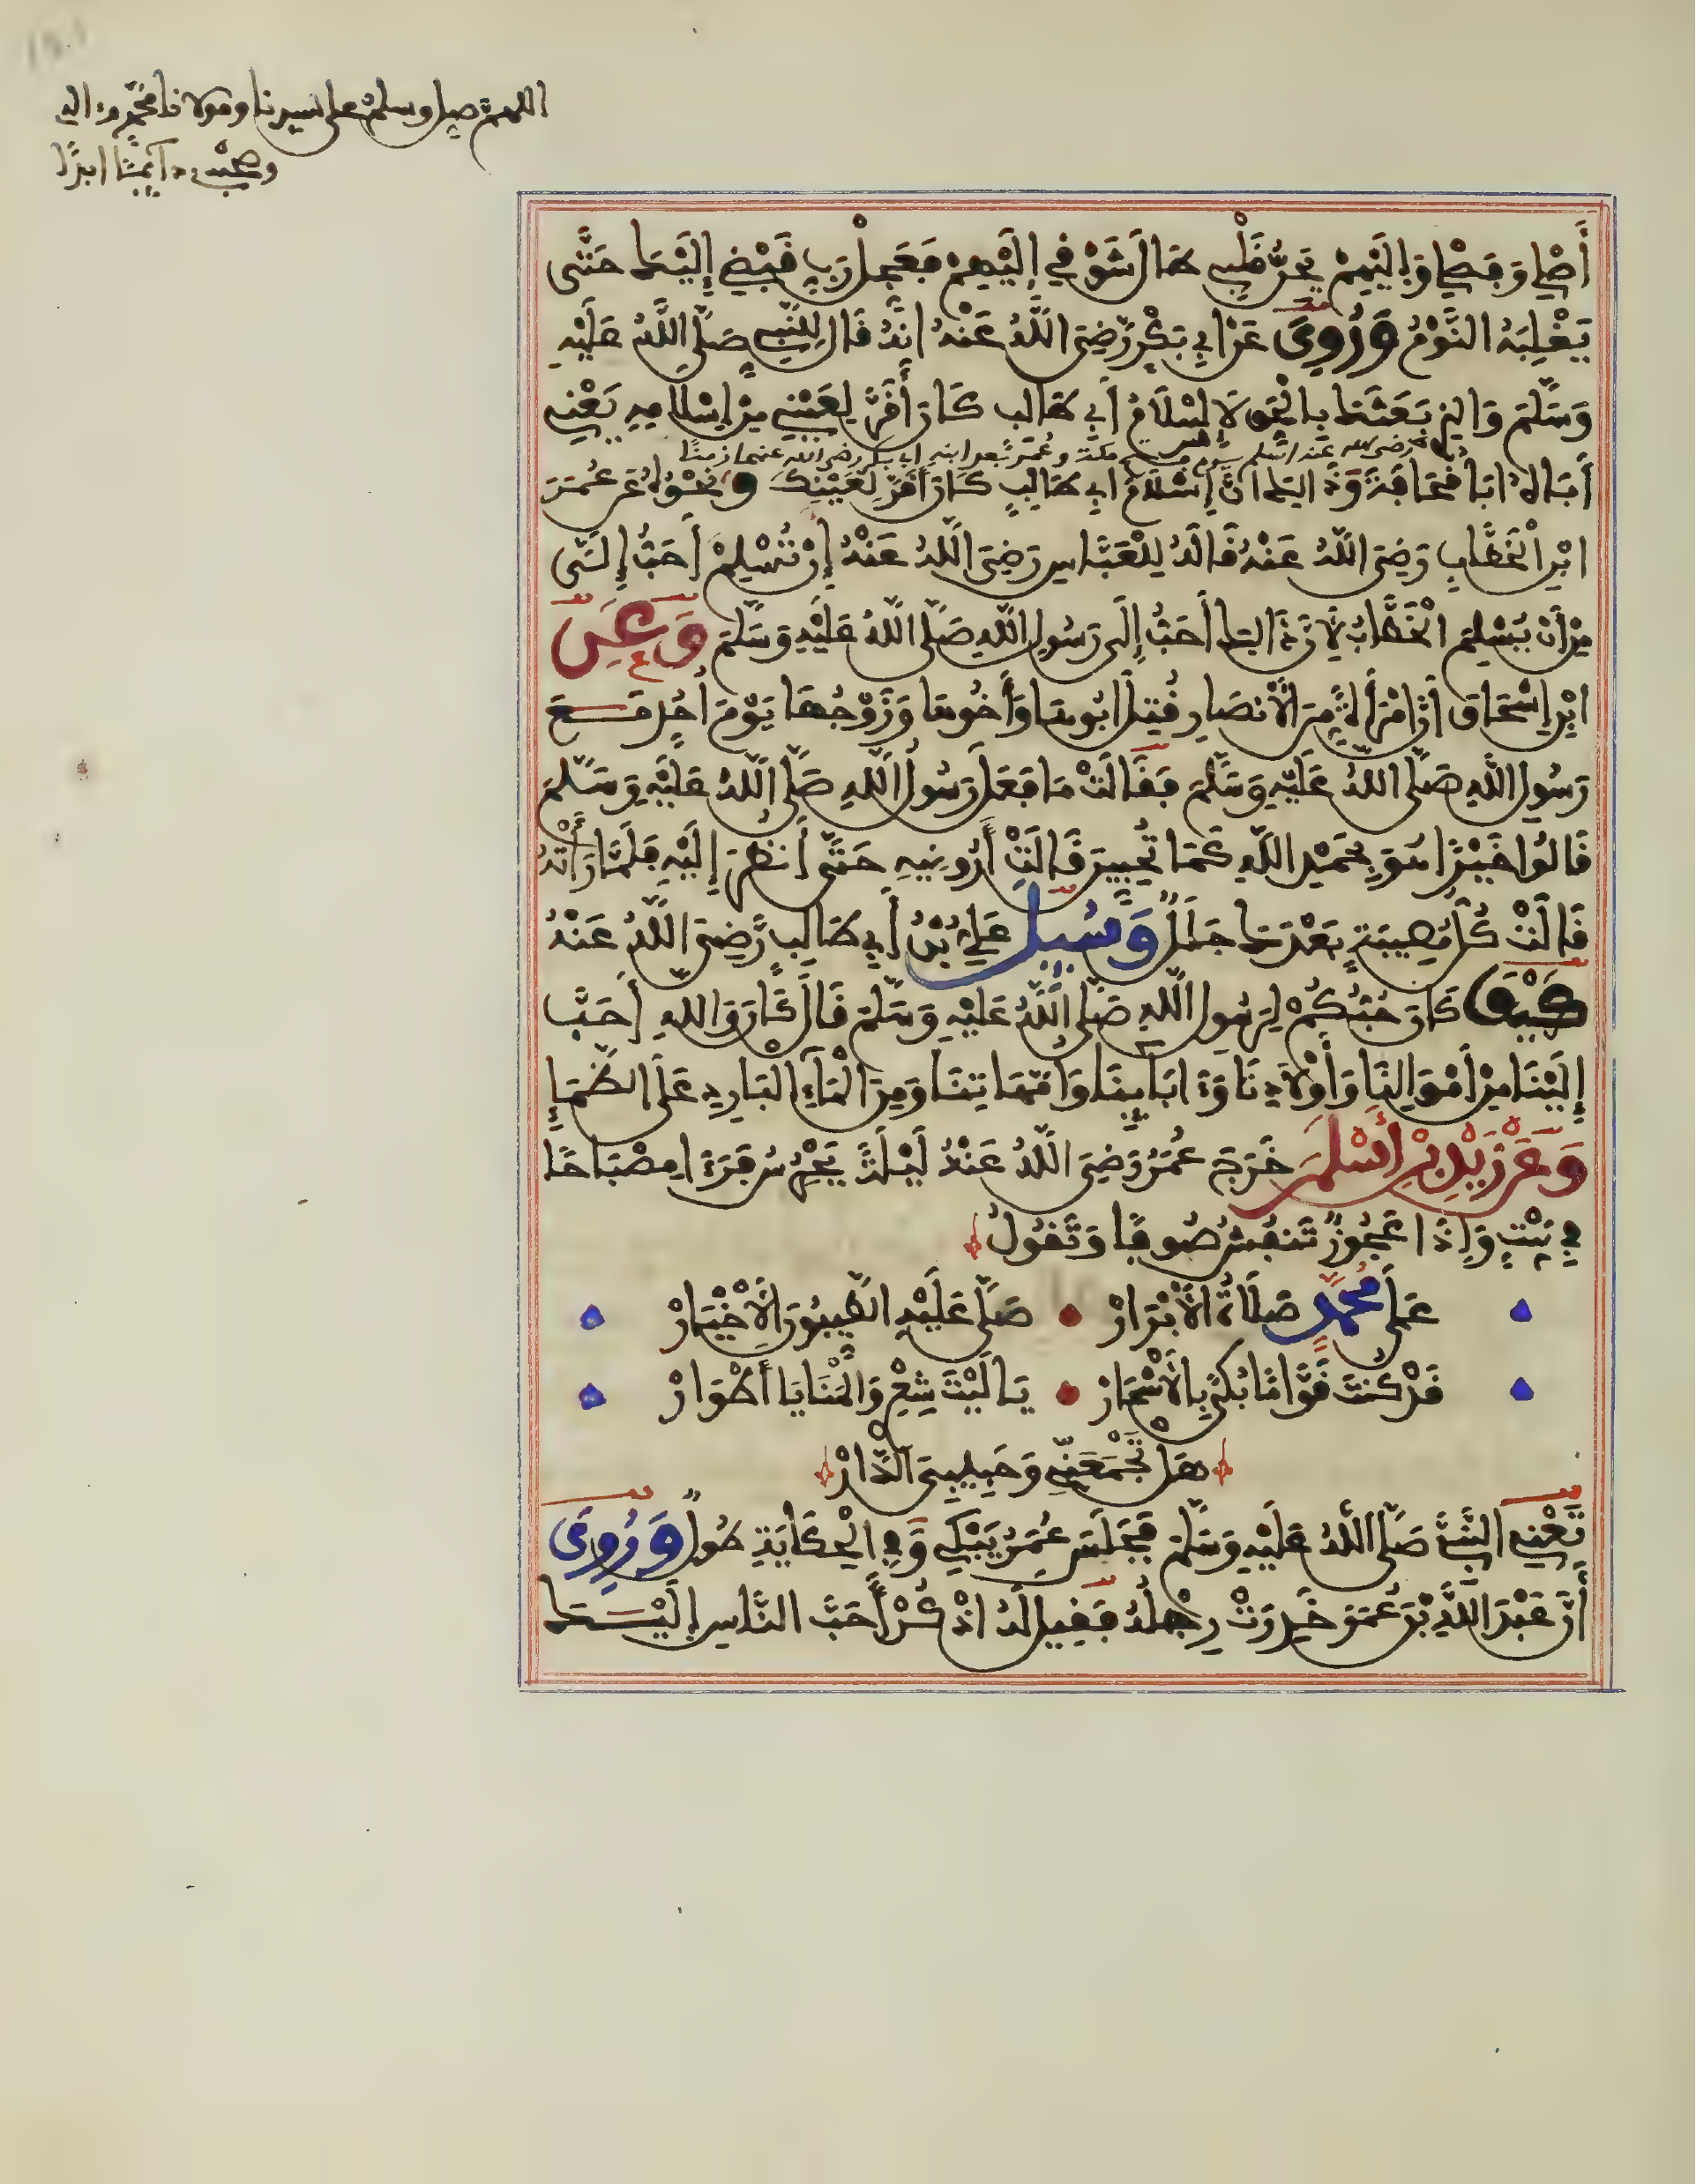 اللهم صل وسلم على سيدنا ومولانا محمد وءاله
وصحبه دآئما ابدا
أَصْلِي وَفَصْلِي وَإِلَيْهِمْ يَحِنُّ قَلْبِي طَالَ شَوْقِي إِلَيْهِمْ فَعَجِّلْ رَبِّ قَبْضِي إِلَيْهَا حَتَّى
يَغْلِبَهُ النَّوْمُ وَرُوِيَ عَنْ أَبِي بَكْرٍ رَّضِيَ اللَّهُ عَنْهُ أَنَّهُ قَالَ لِلنَّبِيِّ صَلَّى اللَّهُ عَلَيْهِ
وَسَلَّمَ وَالذِي بَعَثَكَ بِالْحَقِّ لَإِسْلَامُ أَبِي طَالِبٍ كَانَ أَقَرَّ لِعَيْنِي مِنْ إِسْلَامِهِ يَعْنِي
أَبَاهُ أَبَا قُحَافَةَ وَذَالِكَ أَنَّ إِسْلَامَ أَبِي طَالِبٍ كَانَ أَقَرَّ لِعَيْنِكَ وَنَحْوُهُ عَنْ عُمَرَ
ابْنِ الْخَطَّابِ رَضِيَ اللَّهُ عَنْهُ قَالَهُ لِلْعَبَّاسِ رَضِيَ اللَّهُ عَنْهُ إِنْ تُسْلِمْ أَحَبُّ إِلَيَّ
مِنْ أَنْ يُسْلِمَ الْخَطَّابُ لِأَنَّ ذَالِكَ أَحَبُّ إِلَى رَسُولِ اللَّهِ صَلَّى اللَّهُ عَلَيْهِ وَسَلَّمَ وَعَنِ
ابْنِ إِسْحَاقَ أَنَّ امْرَأَةً مِنَ الْأَنْصَارِ قُتِلَ أَبُوهَا وَأَخُوهَا وَزَوْجُهَا يَوْمَ أُحُدٍ مَعَ
رَسُولِ اللَّهِ صَلَّى اللَّهُ عَلَيْهِ وَسَلَّمَ فَقَالَتْ مَا فَعَلَ رَسُولُ اللَّهِ صَلَّى اللَّهُ عَلَيْهِ وَسَلَّمَ
قَالُوا خَيْرًا هُوَ بِحَمْدِ اللَّهِ كَمَا تُحِبِّينَ قَالَتْ أَرُونِيهِ حَتَّى أَنظُرَ إِلَيْهِ فَلَمَّا رَأَتْهُ
قَالَتْ كُلُّ مُصِيبَةٍ بَعْدَكَ جَلَلٌ وَسُئِلَ عَلِيُّ بْنُ أَبِي طَالِبٍ رَّضِيَ اللَّهُ عَنْهُ
كَيْفَ كَانَ حُبُّكُمْ لِرَسُولِ اللَّهِ صَلَّى اللَّهُ عَلَيْهِ وَسَلَّمَ قَالَ كَانَ وَاللَّهِ أَحَبَّ
إِلَيْنَا مِنْ أَمْوَالِنَا وَأَوْلَادِنَا وَءَابَآئِنَا وَأُمَّهَاتِنَا وَمِنَ الْمَاءِ الْبَارِدِ عَلَى الظَّمَإِ
وَعَنْ زَيْدِ بْنِ أَسْلَمَ خَرَجَ عُمَرُ رَضِيَ اللَّهُ عَنْهُ لَيْلَةً يَحْرُسُ فَرَءَا مِصْبَاحًا
فِي بَيْتٍ وَإِذَا عَجُوزٌ تَنفُشُ صُوفًا وَتَقُولُ
عَلَى مُحَمَّدٍ صَلَاةُ الْأَبْرَارْ صَلَّى عَلَيْهِ الطَّيِّبُونَ الْأَخْيَارْ
قَدْ كُنتَ قَوَّامًا بُكًى بِالْأَسْحَارْ يَا لَيْتَ شِعْرِي وَالْمَنَايَا أَطْوَارْ
هَلْ تَجْمَعَنِّي وَحَبِيبِيَ الدَّارْ
تَعْنِي النَّبِيَّ صَلَّى اللَّهُ عَلَيْهِ وَسَلَّمَ فَجَلَسَ عُمَرُ يَبْكِي وَفِي الْحِكَايَةِ طُولٌ وَرُوِيَ
أَنَّ عَبْدَ اللَّهِ بْنَ عُمَرَ خَدِرَتْ رِجْلُهُ فَقِيلَ لَهُ اذْكُرْ أَحَبَّ النَّاسِ إِلَيْكَ